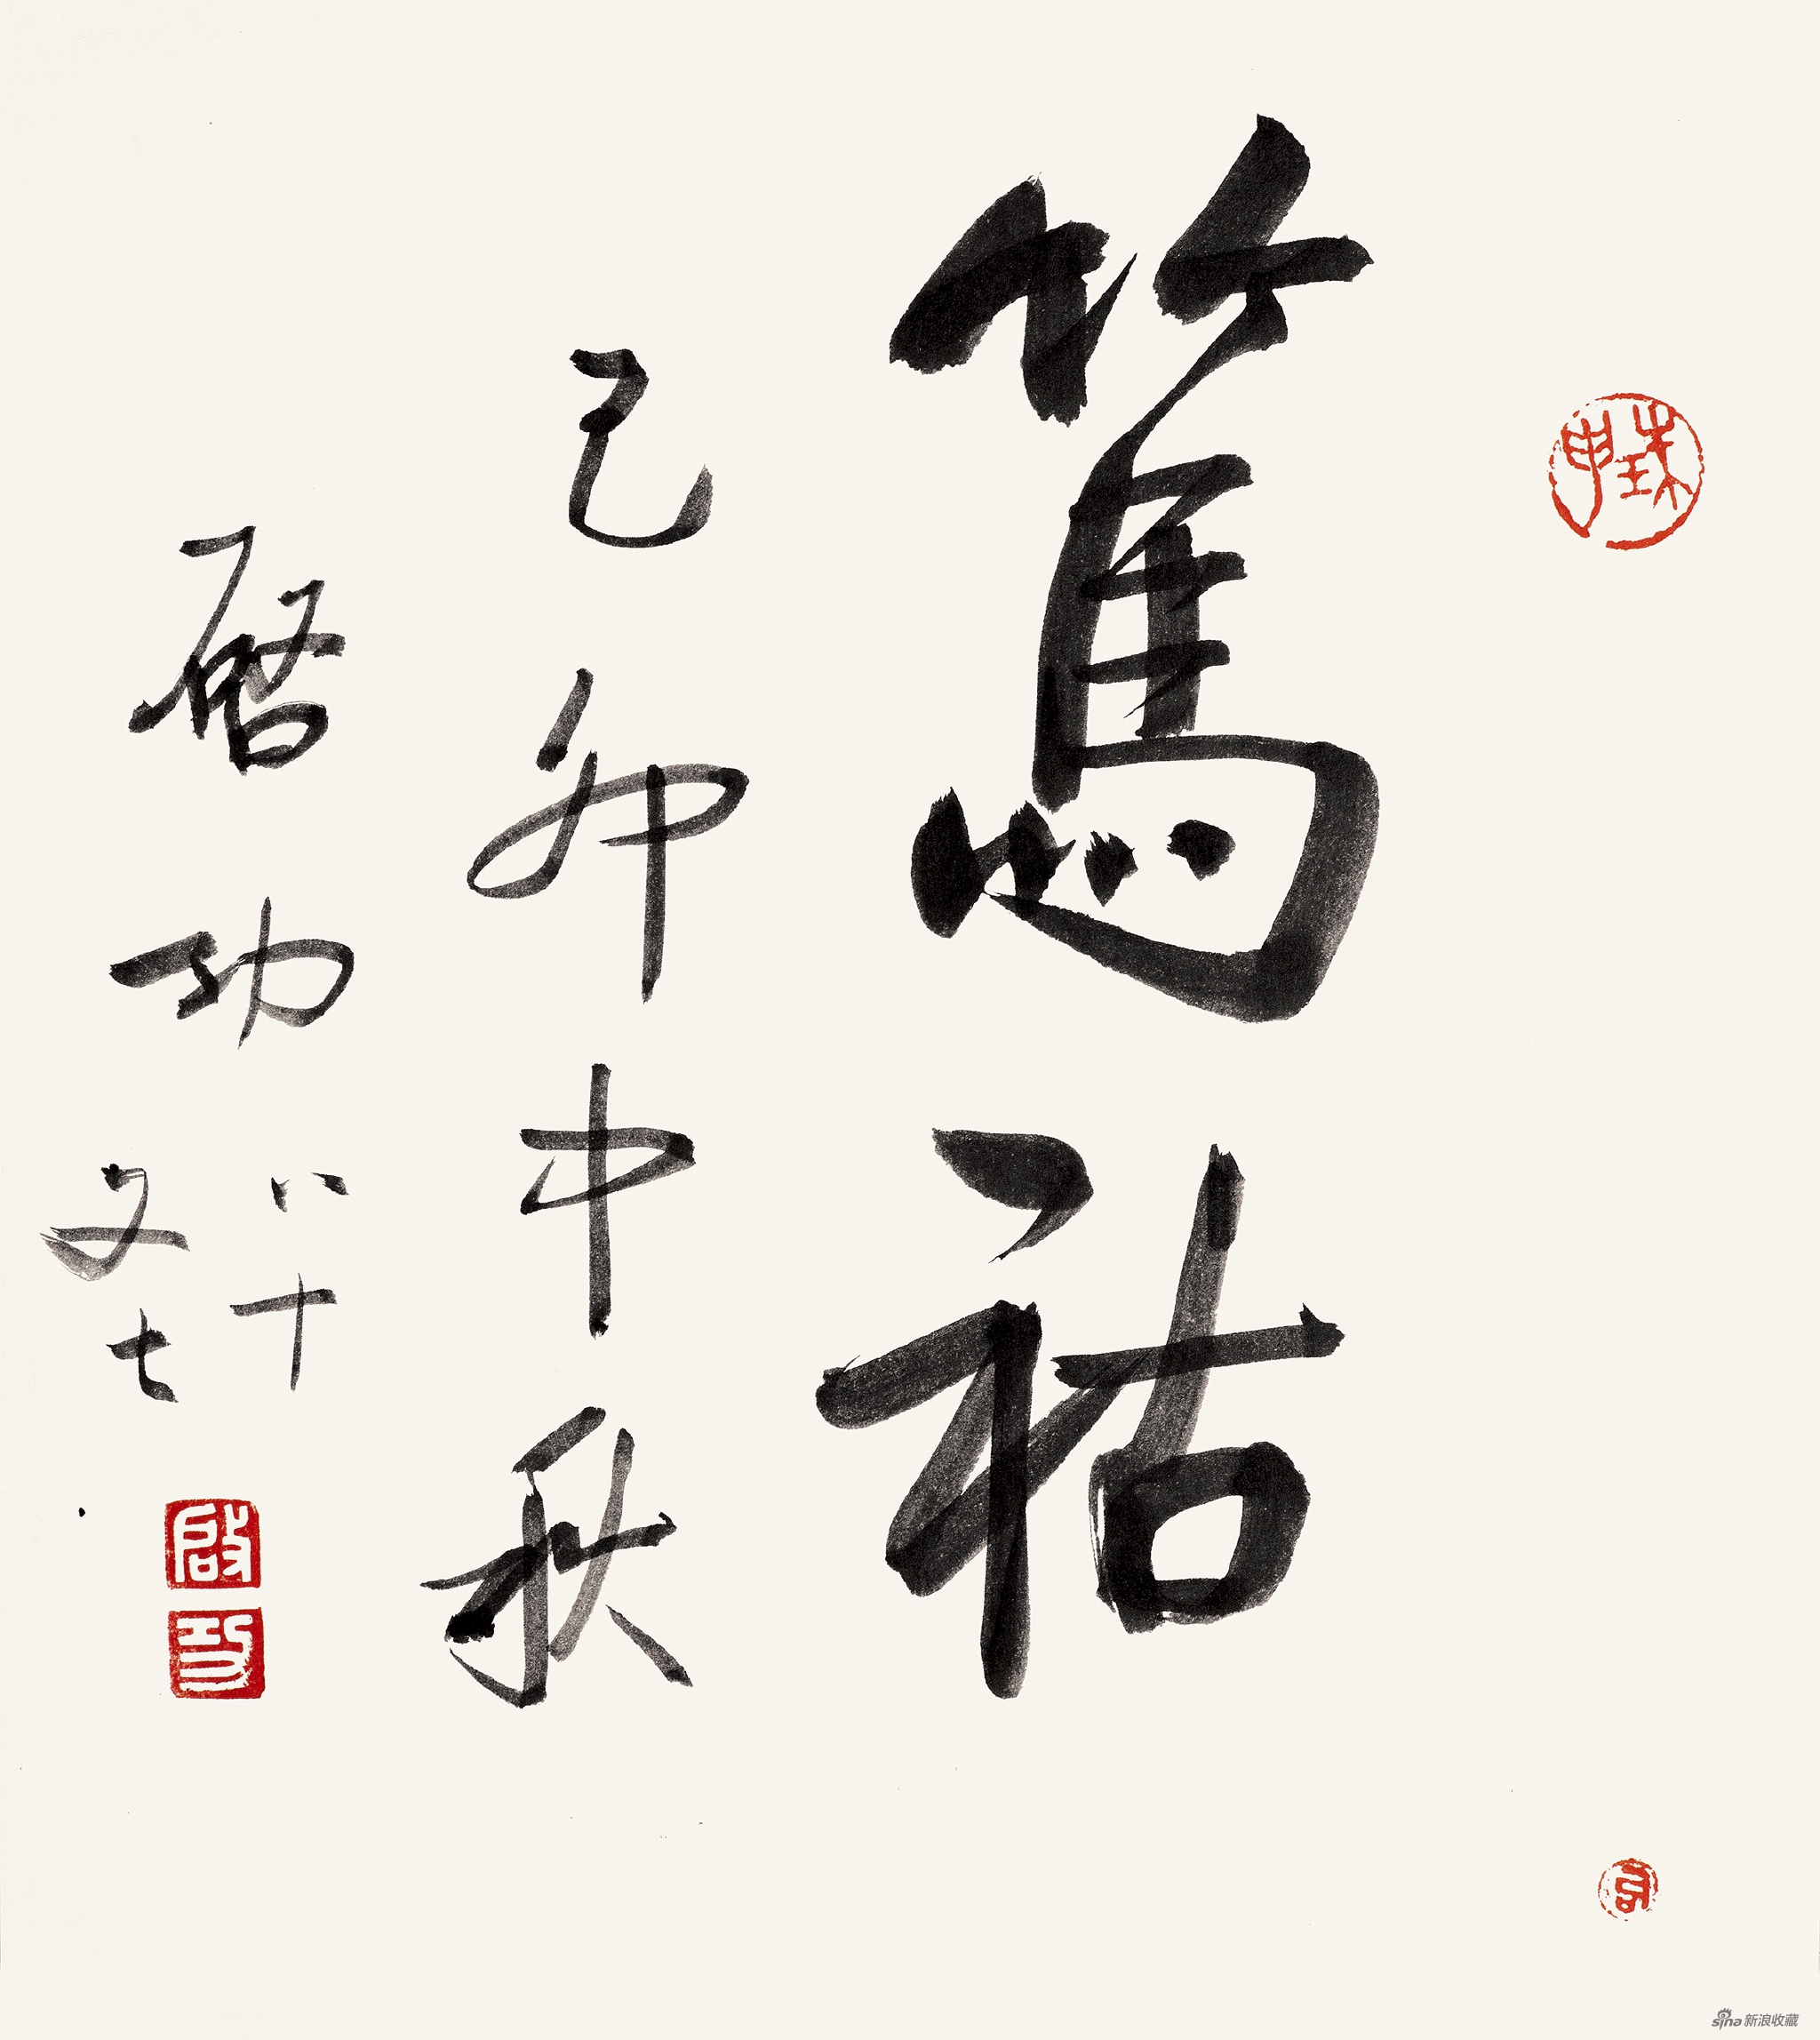 篤祜
己卯中秋
啓功
八十
又七
啟
功
珠申
sina 新浪收藏